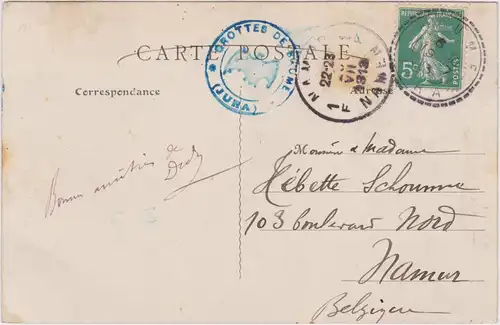 CARTE POSTALE
* GROTTES DE BAUME * (JURA)
NAMUR 1 F
22-23
VI
1913
NAMEN
5c
POSTES
Correspondance
Adresse
Bonnes amitiés de
Dedy
Monsieur & Madame
Hébette Schoumne
103 boulevard Nord
Namur
Belgique